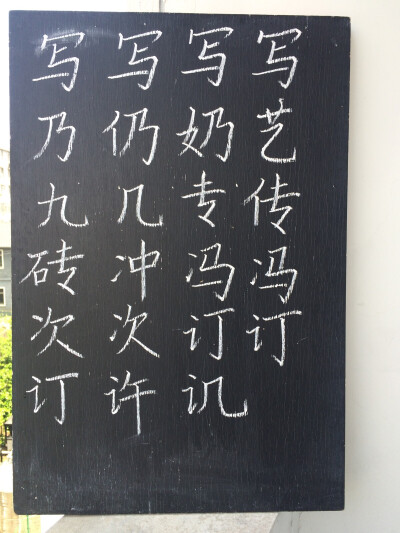 写写写写
乃仍奶艺
九几专传
砖冲冯冯
次次订订
订许讥